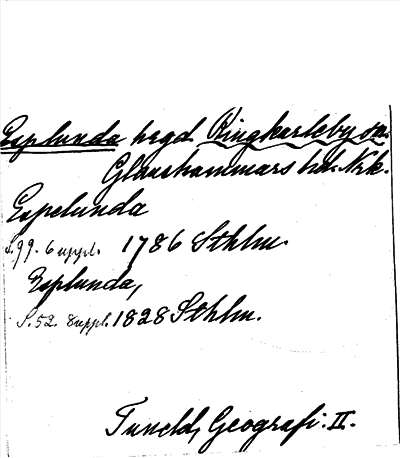 Esplunda hrgd. Ringkarleby sn.
Glanshammars hd. Nrk.
Espelunda
S. 99. 6 uppl. 1786 Sthlm.
Esplunda,
S. 52. 8 uppl. 1828 Sthlm.
Tuneld, Geografi. II.